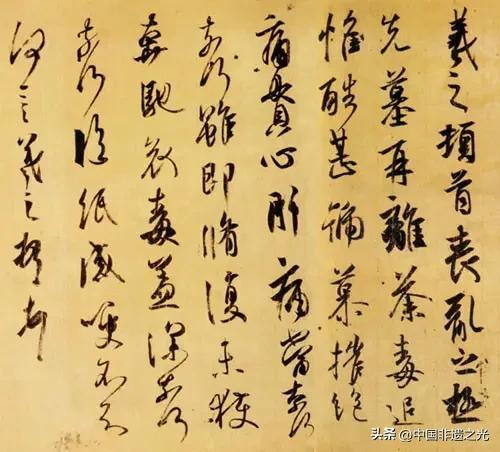 羲之頓首喪亂之極
先墓再離荼毒追
惟酷甚號慕摧絕
痛貫心肝痛當奈何
奈何雖即脩復未獲
奔馳哀毒益深奈何
奈何臨紙感哽不知
何言羲之頓首頓首
头条 @中国非遗之光